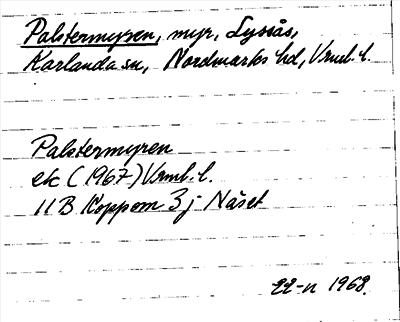 Palstermyren, myr, Lysås,
Karlanda sn, Nordmarks hd, Vrml. l.
Palstermyren
ek (1967) Vrml. l.
11B Koppom 3j Näset
22-11 1968.